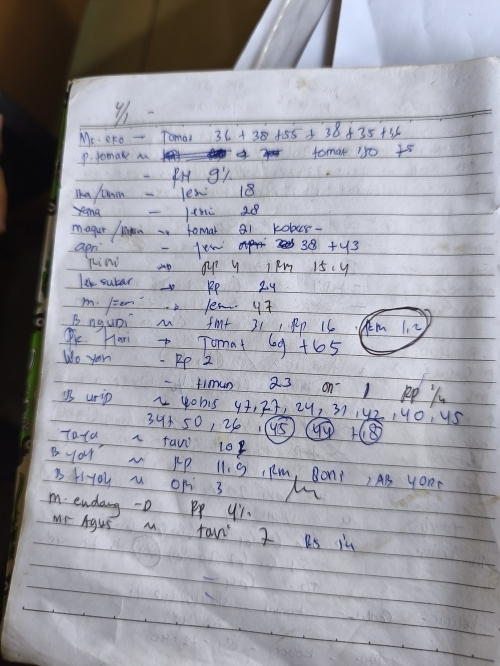 4/1 -
Mr. eko → Tomat 36 + 38 + 55 + 38 + 35 + 36
P. tomat ~ tomat 150 75
- RM 9 1/2
Ika/ - Jeni 18
Yana - Jeni 28
magur/ → tomat 21 kobis -
apri - Jeni 38 + 43
Rini → Rp 4, RM 15.4
lek sukar → Rp 24
m. /Jeni → Jeni 47
B nguri ~ tmt 31, Rp 16 RM 1,2
Pk. Hari → Tomat 69 + 65
Wo yan - Rp 2
- timun 23 on 1 Rp 1/4
B urip ~ kobis 47, 27, 24, 31, 42, 40, 45
34 + 50, 26, 45 44 + 18
yaya ~ tawi 10
B yati ~ Rp 11.9, RM, 8 ons, AB 4 ons
B tiyah ~ ori 3
m. endang → Rp 4 1/2
Mr Agus ~ tawi 7 RB 14